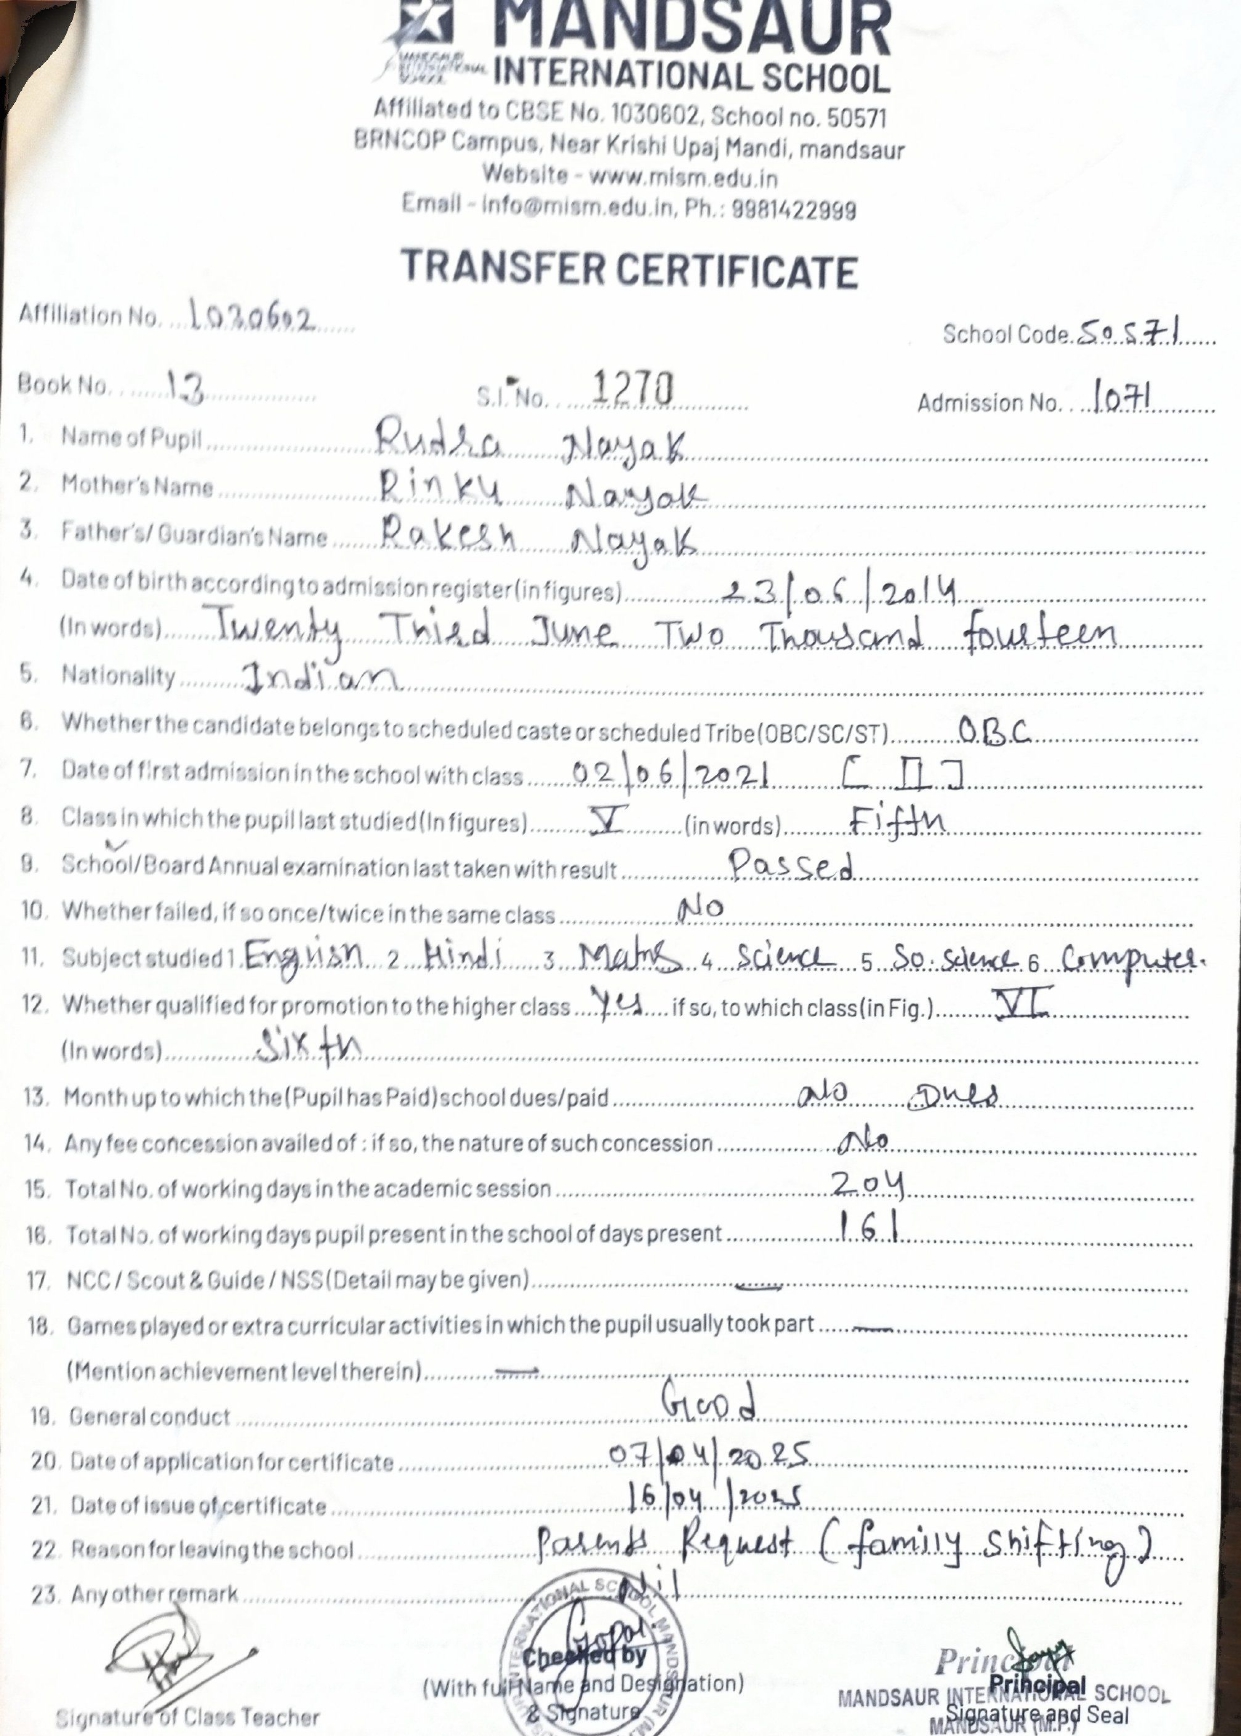 MANDSAUR
INTERNATIONAL SCHOOL
Affiliated to CBSE No. 1030602, School no. 50571
BRNCOP Campus, Near Krishi Upaj Mandi, mandsaur
Website - www.mism.edu.in
Email - info@mism.edu.in, Ph.: 9981422999
TRANSFER CERTIFICATE
Affiliation No. 1030602 School Code. 50571
Book No. 13 S.I. No. 1270 Admission No. 1071
1. Name of Pupil Rudra Nayak
2. Mother's Name Rinku Nayak
3. Father's/ Guardian's Name Rakesh Nayak
4. Date of birth according to admission register (in figures) 23/06/2014
(In words) Twenty Third June Two Thousand fourteen
5. Nationality Indian
6. Whether the candidate belongs to scheduled caste or scheduled Tribe (OBC/SC/ST) OBC
7. Date of first admission in the school with class 02/06/2021 [ II ]
8. Class in which the pupil last studied (In figures) V (in words) Fifth
9. School/Board Annual examination last taken with result Passed
10. Whether failed, if so once/twice in the same class No
11. Subject studied 1. English 2 Hindi 3 Maths 4 Science 5 So. Science 6 Computer.
12. Whether qualified for promotion to the higher class Yes if so, to which class (in Fig.) VI
(In words) Sixth
13. Month up to which the (Pupil has Paid) school dues/paid No Dues
14. Any fee concession availed of : if so, the nature of such concession No
15. Total No. of working days in the academic session 204
16. Total No. of working days pupil present in the school of days present 161
17. NCC / Scout & Guide / NSS (Detail may be given) —
18. Games played or extra curricular activities in which the pupil usually took part —
(Mention achievement level therein) —
19. General conduct Good
20. Date of application for certificate 07/04/2025
21. Date of issue of certificate 16/04/2025
22. Reason for leaving the school Parents Request (family shifting)
23. Any other remark Nil
Checked by
(With full Name and Designation)
& Signature
Signature of Class Teacher
Principal
Principal
MANDSAUR INTERNATIONAL SCHOOL
Signature and Seal
MANDSAUR (M.P.)